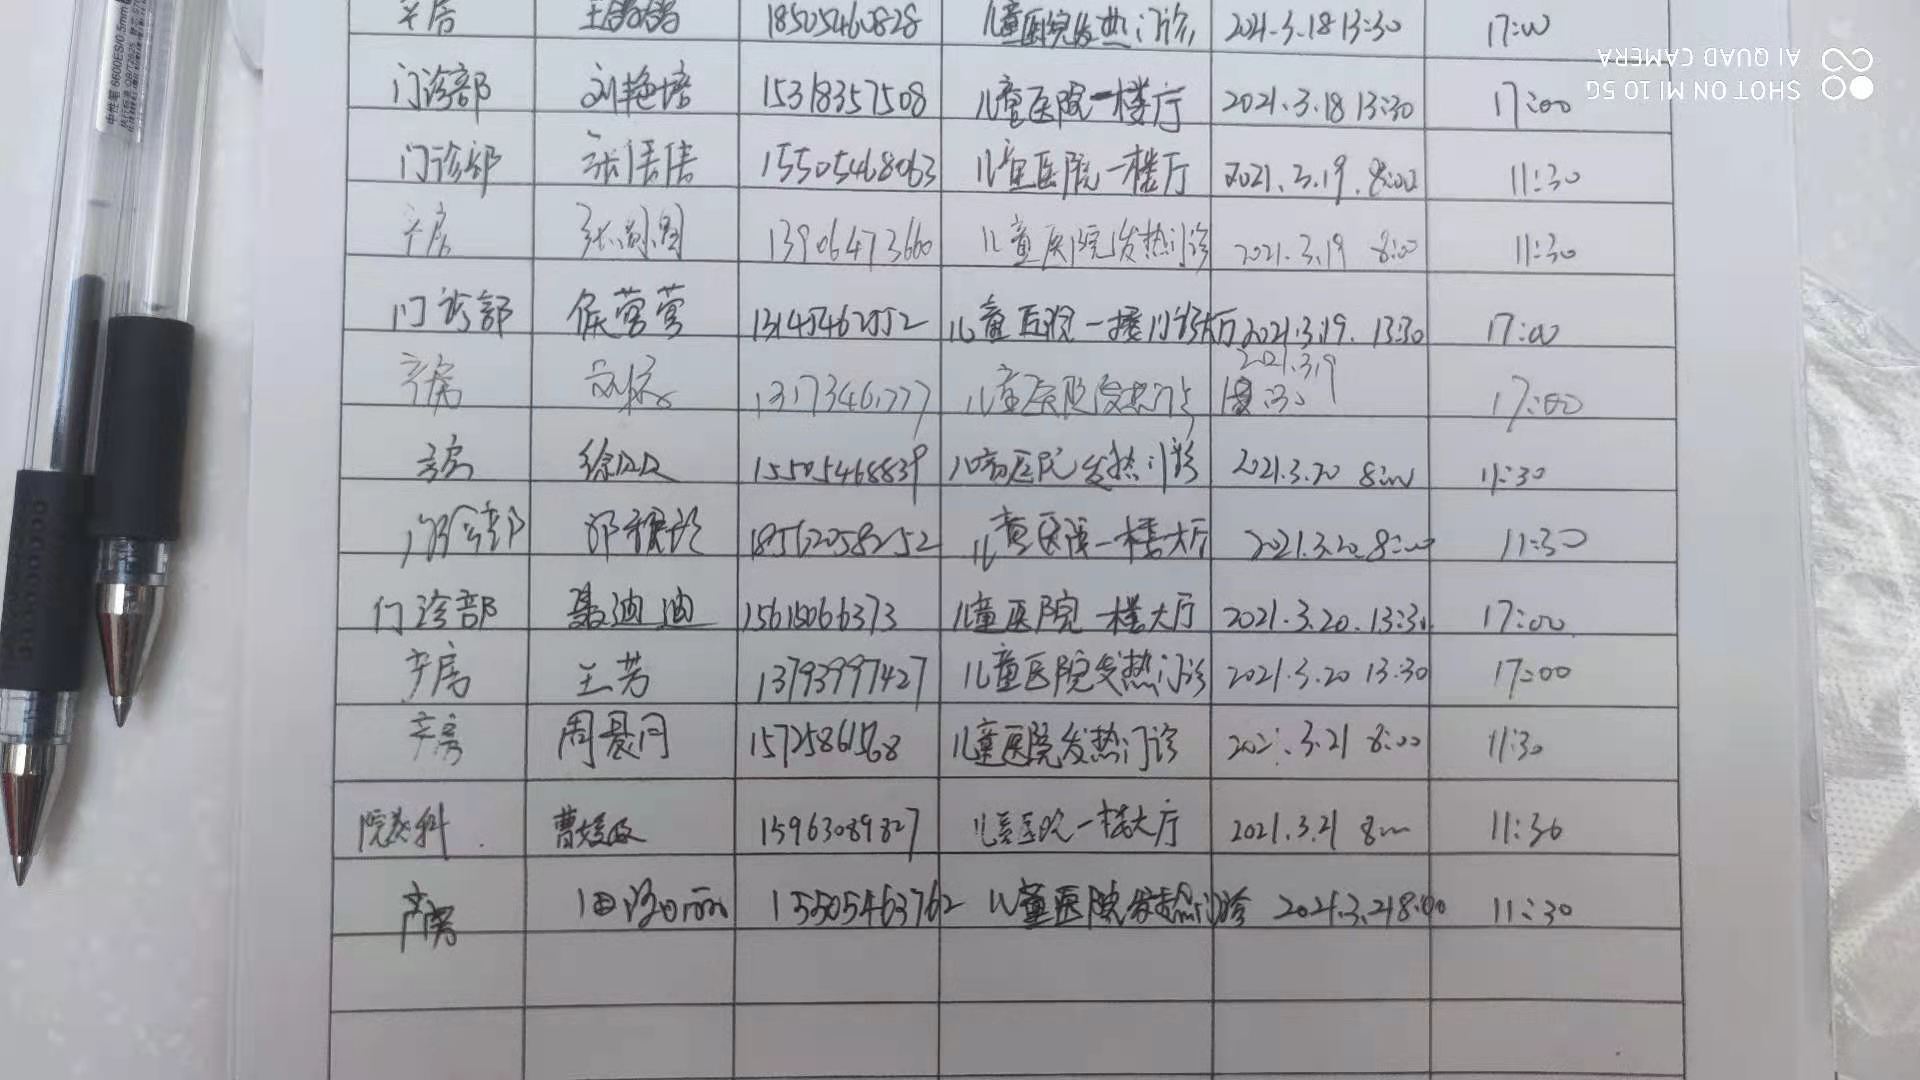 产房 王 18505460828 儿童医院发热门诊 2021.3.18 13:30 17:00
门诊部 刘艳培 15318357508 儿童医院一楼厅 2021.3.18 13:30 17:00
门诊部 张倩倩 15505468063 儿童医院一楼厅 2021.3.19. 8:00 11:30
产房 张 13906473660 儿童医院发热门诊 2021.3.19 8:00 11:30
门诊部 侯莺莺 儿童医院一楼门诊大厅 2021.3.19. 13:30 17:00
产房 刘 儿童医院发热门诊 2021.3.19 :30 17:00
产房 徐 15505468839 儿童医院发热门诊 2021.3.20 8:00 11:30
门诊部 18562058252 儿童医院一楼大厅 2021.3.20 8:00 11:30
门诊部 聂迪迪 15615066373 儿童医院一楼大厅 2021.3.20. 13:30 17:00
产房 王芳 13793997427 儿童医院发热门诊 2021.3.20 13:30 17:00
产房 周景月 儿童医院发热门诊 2021.3.21 8:00 11:30
院感科 曹 15963089827 儿童医院一楼大厅 2021.3.21 8:00 11:30
产房 田 15505463762 儿童医院发热门诊 2021.3.21 8:00 11:30
SHOT ON MI 10 5G
AI QUAD CAMERA